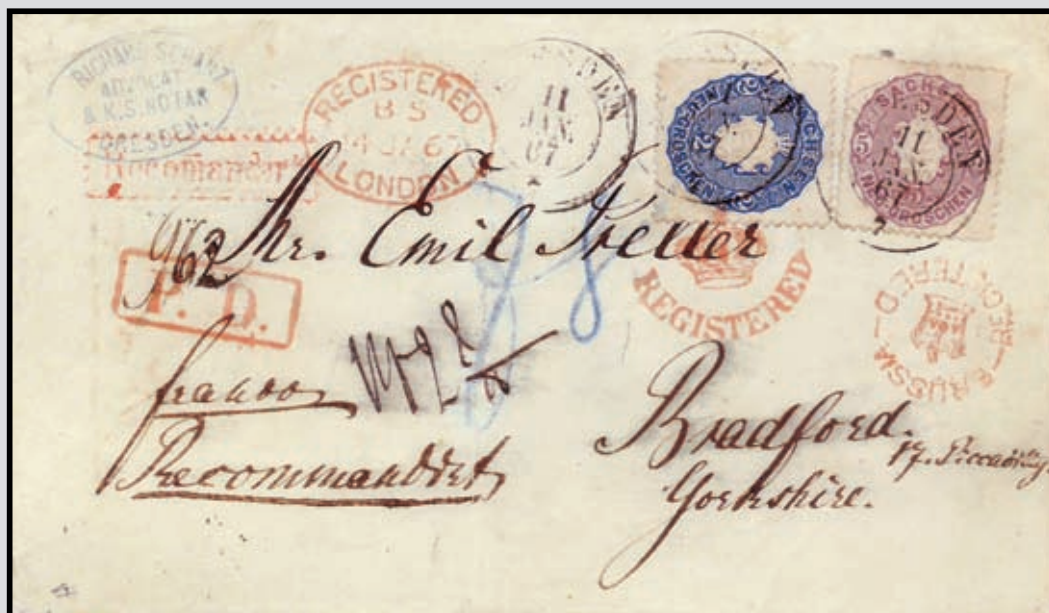 RICHARD SCHANZ
ADVOCAT
& K.S. NOTAR
DRESDEN.
Recomandirt
REGISTERED
B S
14 JA 67
LONDON
DRESDEN
11
JAN
67
2 NEUGROSCHEN SACHSEN
SACHSEN
5 NEUGROSCHEN
DRESDEN
11
JAN
67
962
Mr. Emil
P. D.
REGISTERED
PRUSSIA
REGISTERED
franco
Recommandirt
Bradford.
17. Piccadilly
Yorkshire.